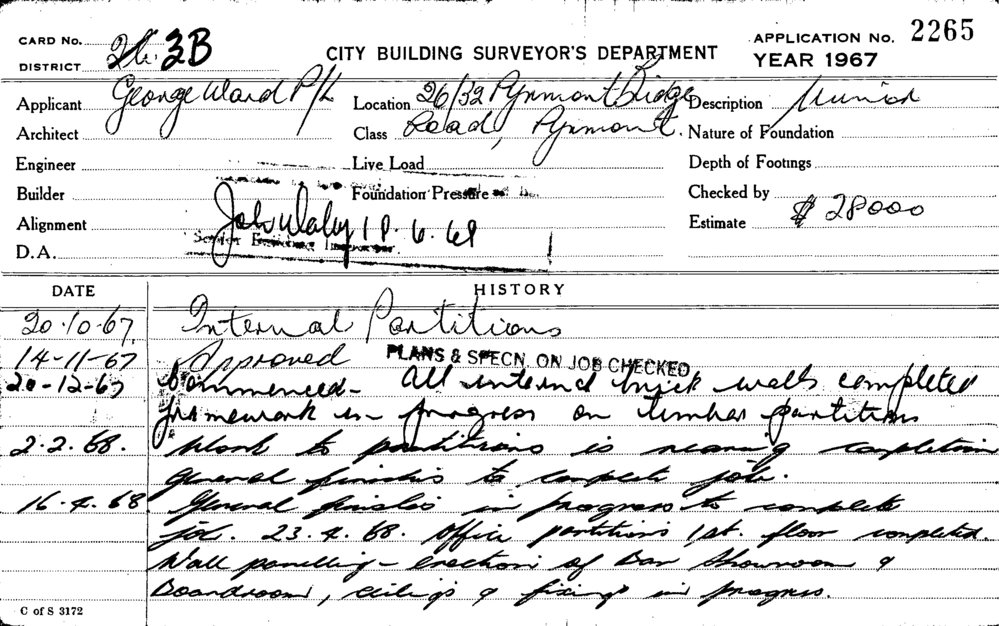 CARD No. 2k. 3B
DISTRICT
CITY BUILDING SURVEYOR'S DEPARTMENT
APPLICATION No. 2265
YEAR 1967
Applicant George Ward P/L
Location 26/32 Pyrmont Bridge
Road, Pyrmont.
Description
Architect
Class
Nature of Foundation
Engineer
Live Load
Depth of Footings
Builder
Foundation Pressure
Checked by
Alignment
Estimate $ 28000
D.A.
Senior Building Inspector
DATE
HISTORY
20.10.67. Internal Partitions
14-11-67 Approved PLANS & SPECN. ON JOB CHECKED
20-12-67 Commenced - All internal brick walls completed
framework in progress on timber partitions
2.2.68. work to partitions is nearing completion
general finishes to complete job.
16.4.68 General finishes in progress to complete
job. 23.4.68. Office partitions 1st. floor completed.
Wall panelling - erection of Bar Showroom &
Boardroom, ceilings & fixings in progress.
C of S 3172